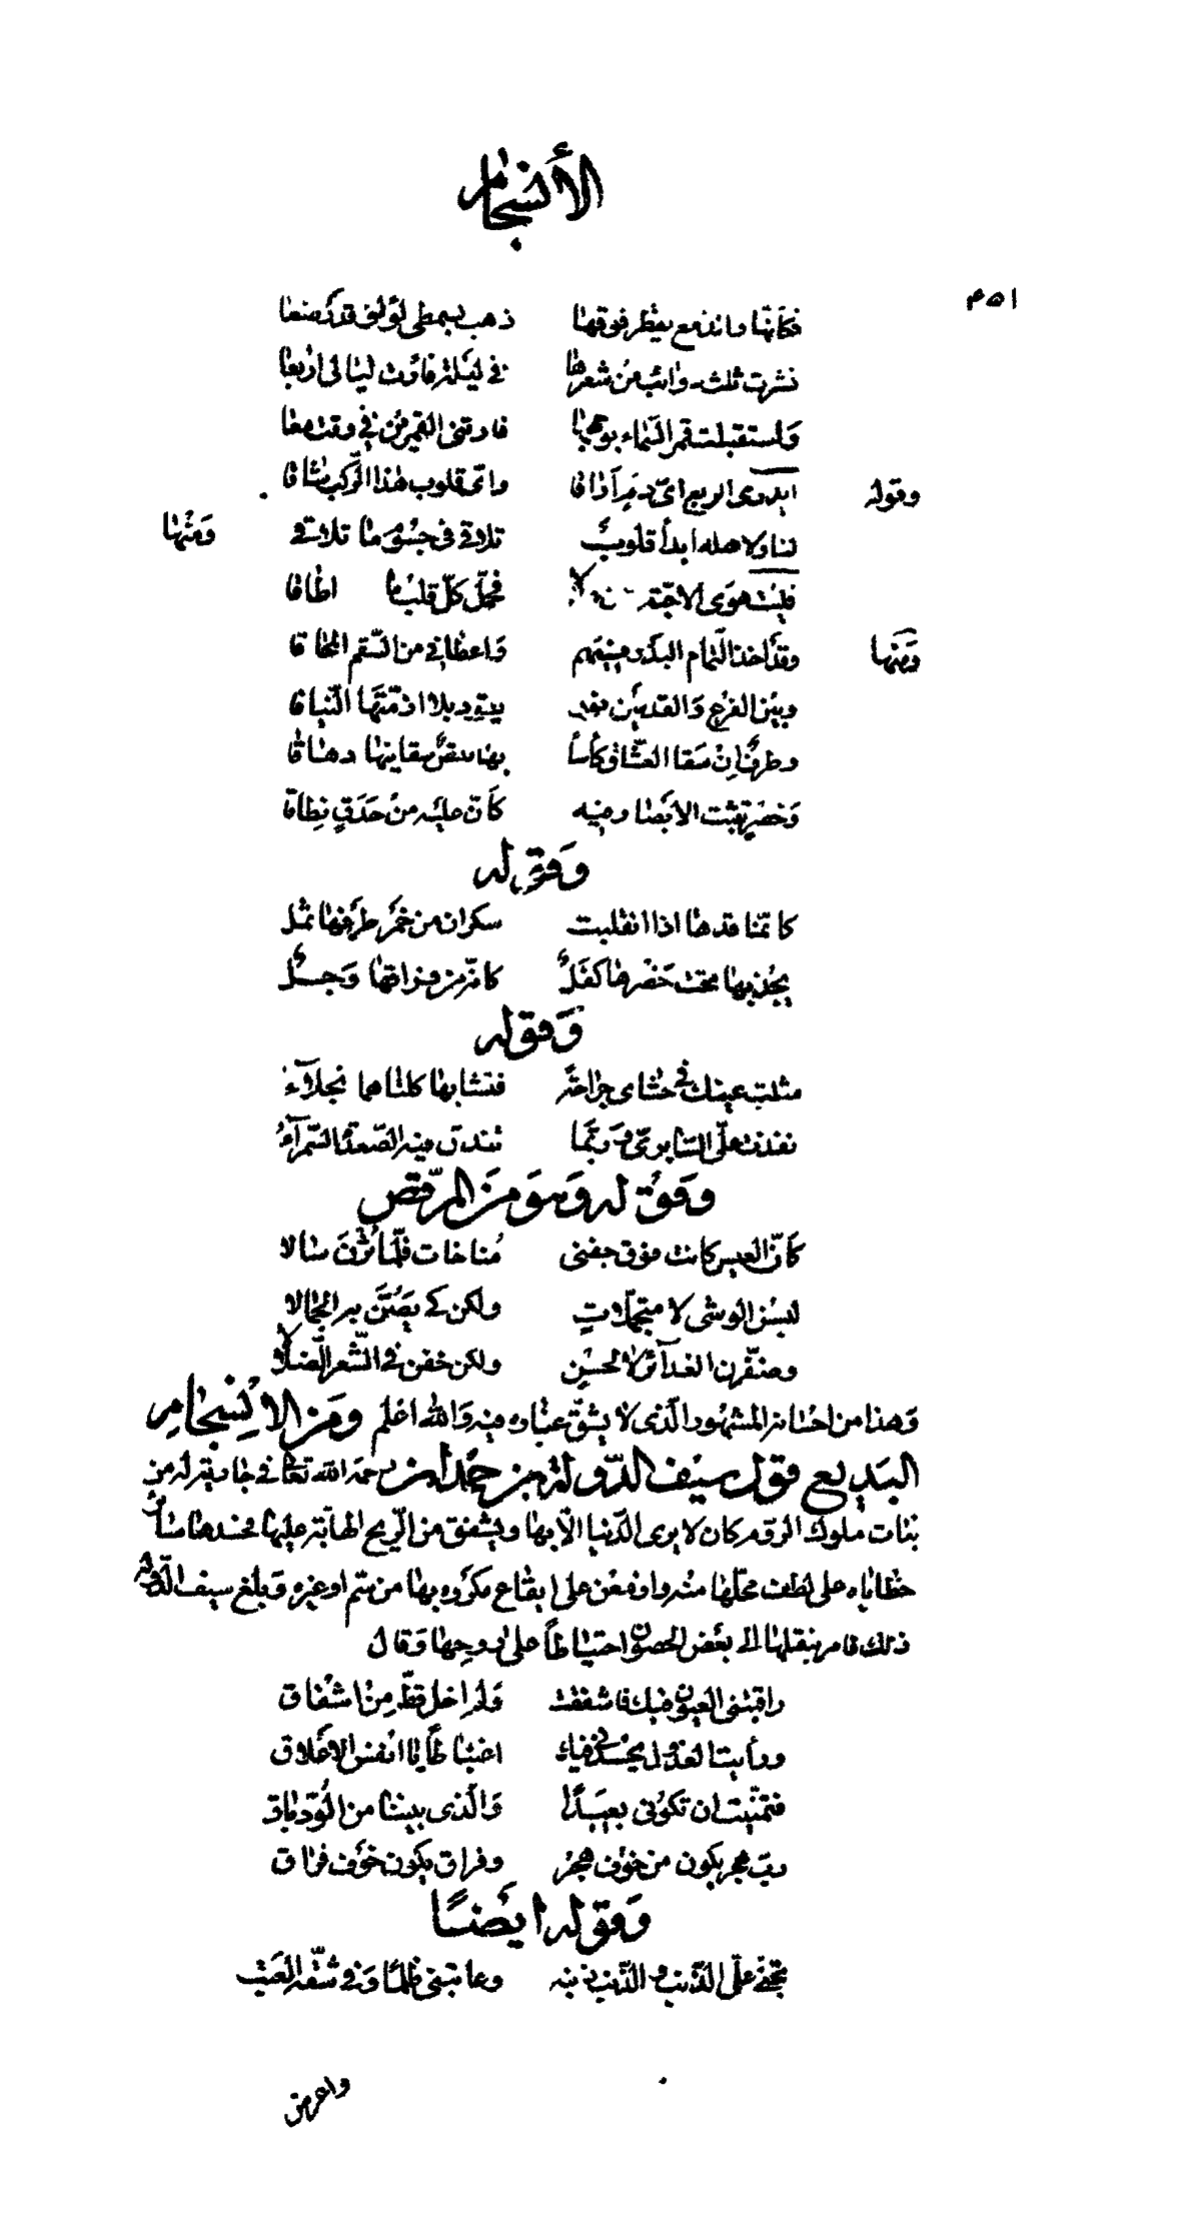 الأنسجام
٤٥١
فكأنّها والدّمع يقطر فوقها ذهب بسمطى لؤلؤ قد رصّعا
نشرت ثلث ذوائب من شعرها فى ليلة فأرت ليالى أربعا
واستقبلت قمر السّماء بوجهها فارتنى القمرين فى وقت معا
وقوله ايدرى الربع اىّ دم أراقا واىّ قلوب هذا الرّكب شاقا
لنا ولاهله ابدأ قلوبٌ تلاقى فى جسوم ما تلاقى ومنها
فليت هوى الاحبّة فحمّل كلّ قلب ما اطاقا
ومنها وقد اخذ التّمام البدر فيهم واعطانى من السّقم المحاقا
وبين الفرع والقدمين نور يقود بلا ازمّتها النّياقا
وطرفٌ ان سقا العشّاق كأساً بها نقص سقانيها دهاقا
وخصر تثبت الابصار فيه كأنّ عليه من حدقٍ نطاقا
وقوله
كانّما قدها اذا انفتلت سكران من خمر طرفها ثمل
يجذبها تحت خصرها كفلٌ كانّه من فراقها وجلٌ
وقوله
مثلت عينك فى حشاى جراحةً فتشابها كلتاهما نجلآء
نفذت علىّ السّابرىّ وربّما تندقّ فيه الصّعدة السّمرآءُ
وقوله وهو من المرقص
كأنّ العيس كانت فوق جفنى مُناخات فلمّا ثرن سالا
لبسن الوشى لا متجمّلاتٍ ولكن كى يصنّ به الجمالا
وضفّرن الغدآئر لا لحسنٍ ولكن خفن فى الشّعر الضّلالا
وهذا من احسانه المشهود الّذى لا يشقّ غباره فيه والله اعلم ومن الانسجام
البديع قول سيف الدّولة بن حمدان رحمه الله تعالى فى جارية له من
بنات ملوك الرّوم كان لا يرى الدّنيا الّا بها ويشفق من الرّيح الهابّة عليها فحسدها سائر
حظاياه على لطف محلّها منه وازمعن على ايقاع مكروه بها من سمّ او غيره وبلغ سيف الدّولة
ذلك فامر بنقلها الى بعض الحصون احتياطاً على روحها وقال
راقبتنى العيون فيك فاشفقت ولم اخل قطّ من اشفاق
ورأيت العذول يحسدنى فيك اغتباطاً يا انفس الاعلاق
فتمنّيت ان تكونى بعيدًا والّذى بيننا من الودّ باق
ربّ هجر يكون من خوف هجر وفراق يكون خوف فراق
وقوله ايضًا
تجنّى علىّ الذّنب والذّنب ذنبه وعاتبنى ظلمًا وفى شقّه العتب
واعرض